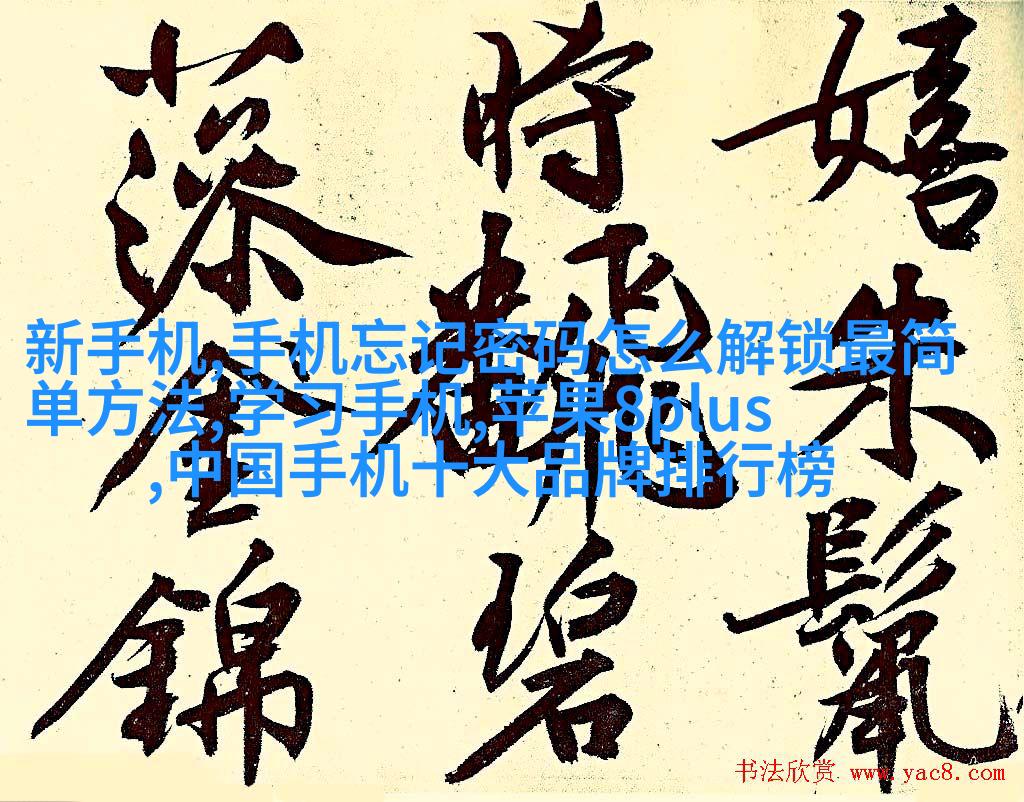 嬉朱鬣
時飜碧
藻錦
新手机,手机忘记密码怎么解锁最简
单方法,学习手机,苹果8plus
,中国手机十大品牌排行榜
书法欣赏 www.yac8.com